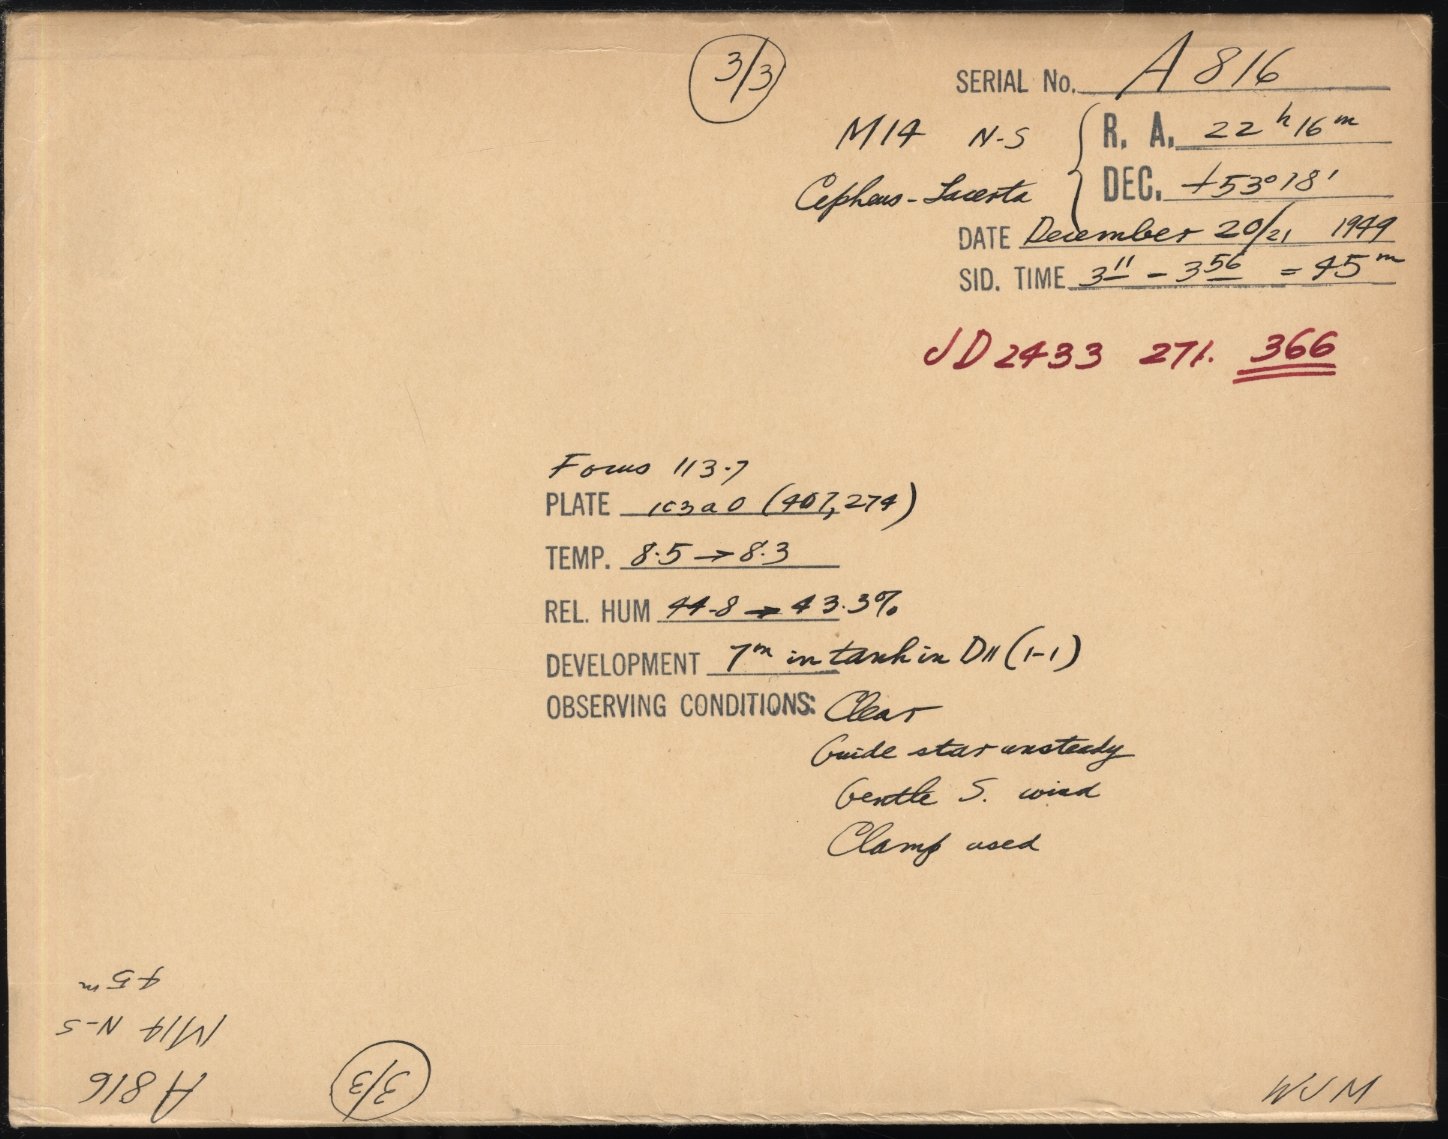 3/3
SERIAL No. A 816
M14 N-S { R. A. 22 h 16 m
Cepheus-Lacerta DEC. +53° 18'
DATE December 20/21 1949
SID. TIME 3 11 - 3 56 = 45 m
JD 2433 271. 366
Focus 113.7
PLATE 103aO (407,274)
TEMP. 8.5 → 8.3
REL. HUM 44.8 → 43.3%
DEVELOPMENT 7m in tank in D11 (1-1)
OBSERVING CONDITIONS: Clear
Guide star unsteady
Gentle S. wind
Clamp used
A 816
M14 N-S
45 m
3/3
WJM